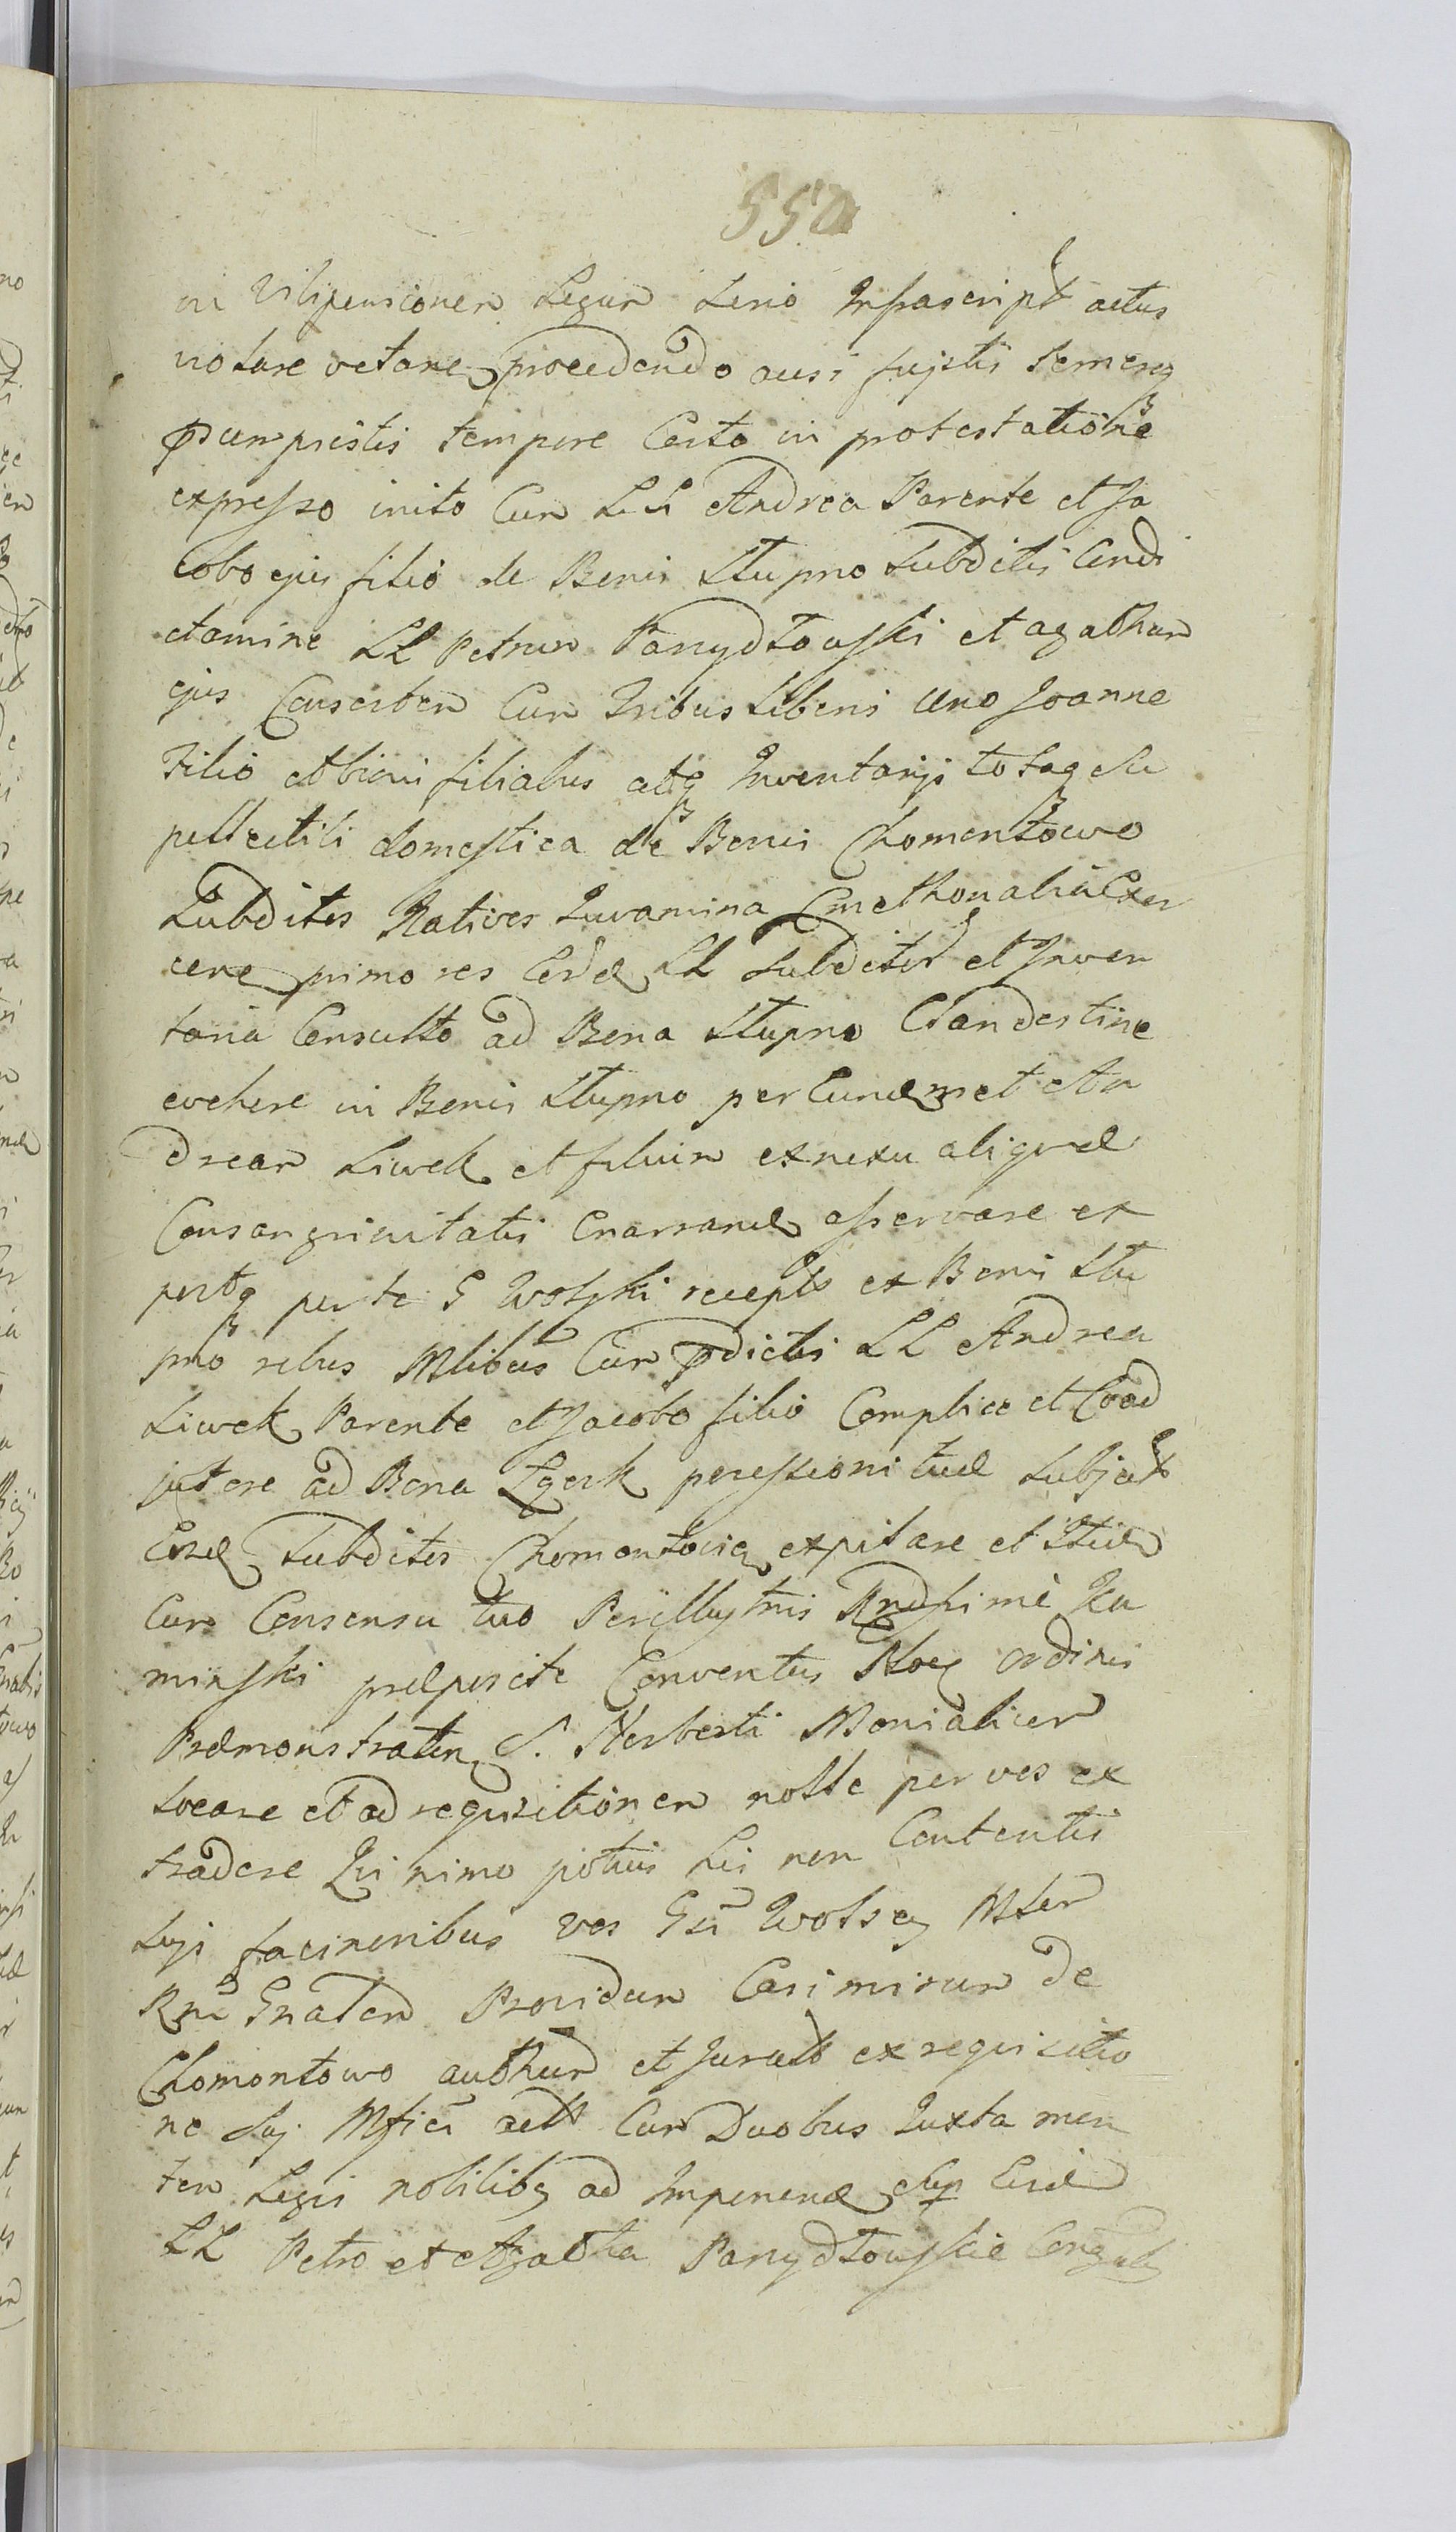 550
in Vilipensionem Legum Serio Infrascript actus
notare vetare procedendo ausi fuistis Temereq
Praesumpsistis tempore Certo in protestatione
expresso inito Cum LL Andrea Parente et Ja
cobo ejus filio de Bonis Stupno Subditis Condi
ctamine LL Petrum Panydłowski et agatham
ejus Consortem Cum Tribus Liberis Uno Joanne
Filio et binis filiabus atq Inventarijs totaq Su
pellectili domestica de Bonis Chomentowo
Subditos Nativos Juvamina Cmethonalia Exer
cere primo res Eord LL Subditor et Inven
taria Consulto ad Bona Stupno Clandestine
evehere in Bonis Stupno per Eundemmet An
dream Siwek et filium ex nexu aliquae
Consangvinitatis Enarrand asservare et
postq per te G Wolski recept ex Bonis Stu
pno rebus Mlibus Cum Praedictis LL Andrea
Siwek Parente et Jacobo filio Complice et Coad
jutore ad Bona Zgork possessioni tuae Subject
Eosd Subditos Chomontovia expilare et Ibid
Cum Consensu tuo Perillustris Rndssime Ka
minski praeposite Conventus Ploc ordinis
Praemonstraten S. Norberti Monialium
locare et ad requisitionem nolle per vos ex
tradere Qui nimo potius his non Contentis
Suis facinoribus vos Gsi Wolscy Mter
Rnd Gnalem Providum Casimirum de
Chomontowo authum et Jurat ex requisitio
ne Suj Mfici act Cum Duobus Juxta men
tem Legis nobilibq ad Imponend Eisd
LL Petro et Agatha Panydłowskie Conjugib